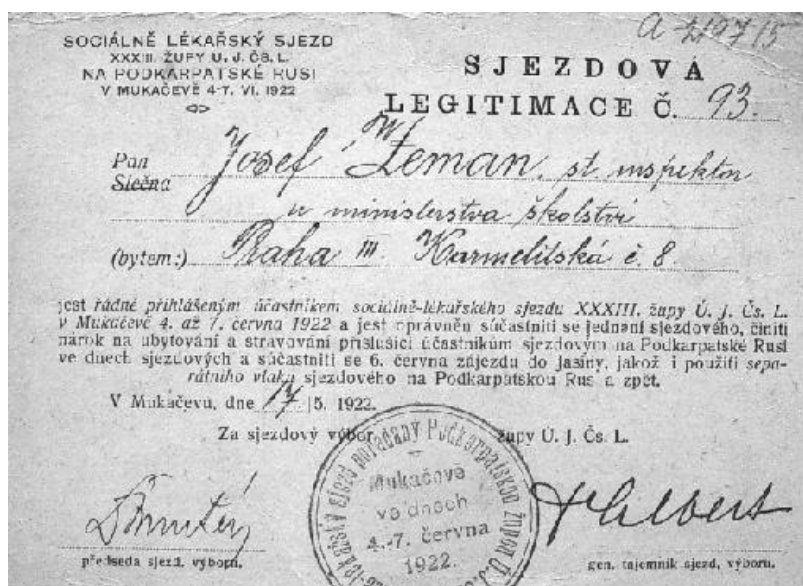 a 2197/5
SOCIÁLNĚ LÉKAŘSKÝ SJEZD
XXXIII. ŽUPY Ú. J. ČS. L.
NA PODKARPATSKÉ RUSI
V MUKAČEVĚ 4-7. VI. 1922
SJEZDOVÁ
LEGITIMACE Č. 93.
Pan Josef Zeman, st. inspektor
Slečna
u ministerstva školství
(bytem:) Praha III. Karmelitská č. 8.
jest řádně přihlášeným účastníkem sociálně-lékařského sjezdu XXXIII. župy Ú. J. Čs. L.
v Mukačevě 4. až 7. června 1922 a jest oprávněn súčastniti se jednání sjezdového, činiti
nárok na ubytování a stravování příslušící účastníkům sjezdovým na Podkarpatské Rusi
ve dnech sjezdových a súčastniti se 6. června zájezdu do Jasiny, jakož i použíti sepa-
rátního vlaku sjezdového na Podkarpatskou Rus a zpět.
V Mukačevu, dne 17. 5. 1922.
Za sjezdový výbor župy Ú. J. Čs. L.
sjezd pořádaný Podkarpatskou župou Ú.
Mukačevě
ve dnech
4.-7. června
1922.
předseda sjezd. výboru.
gen. tajemník sjezd. výboru.